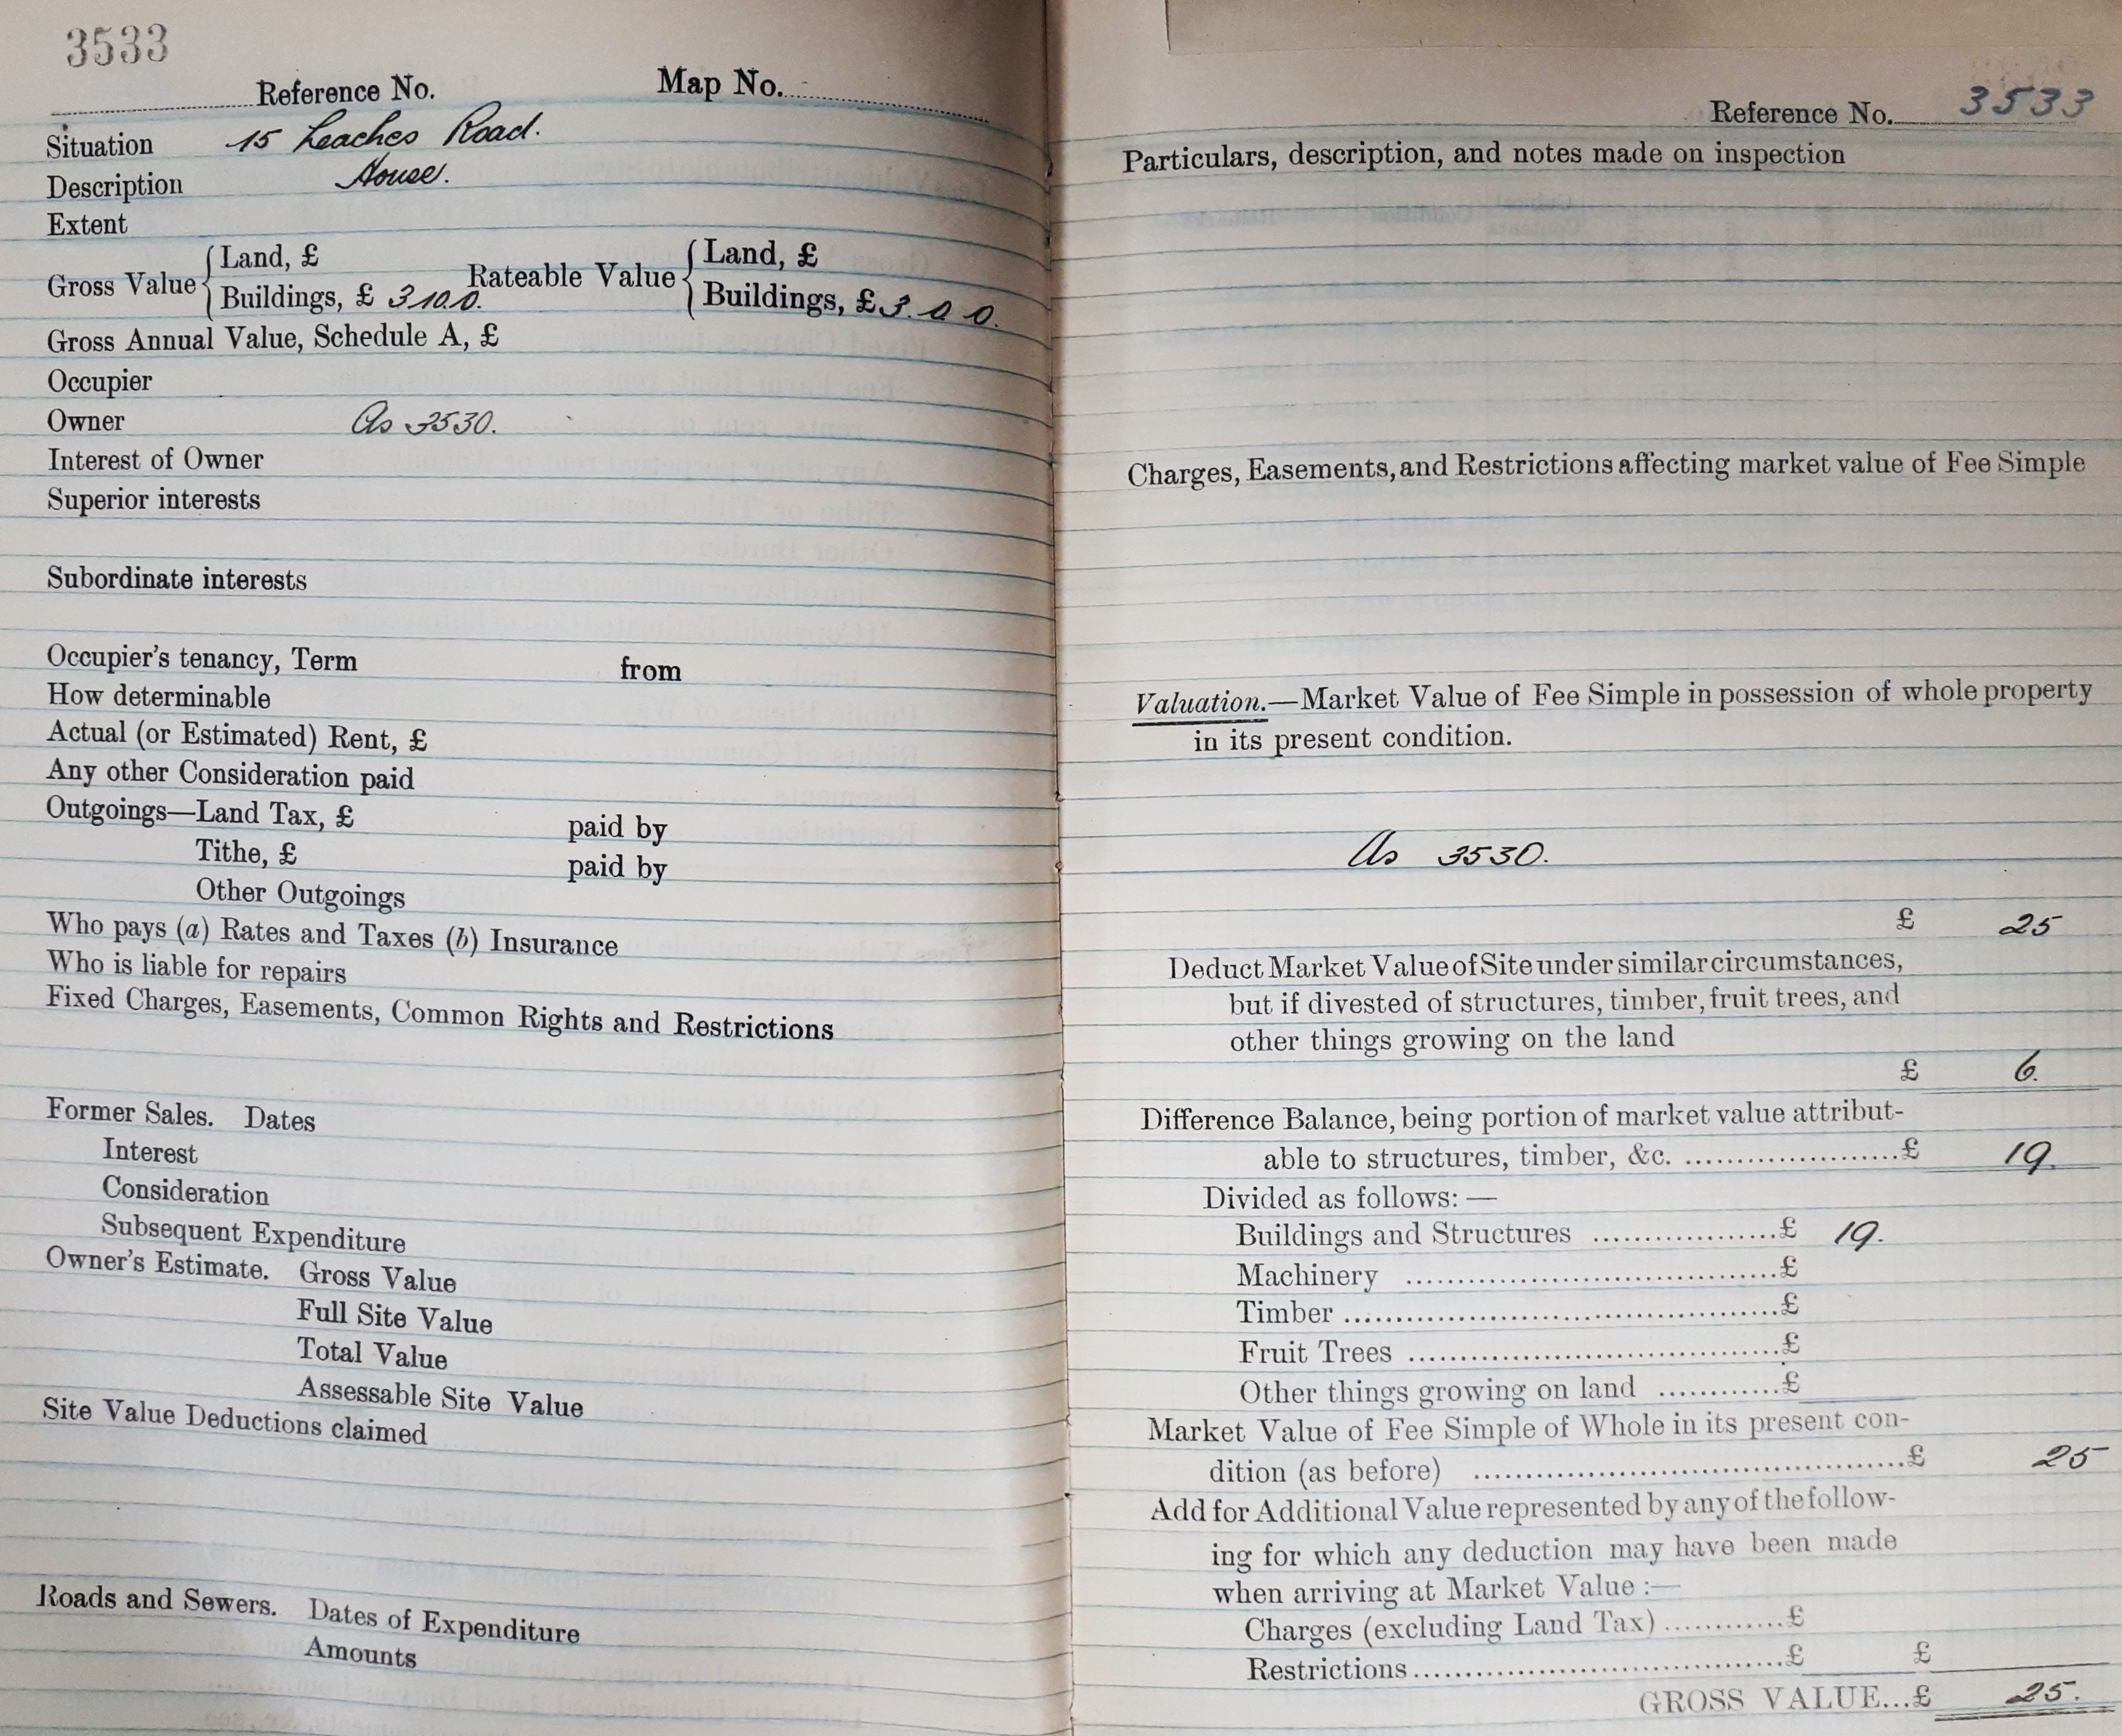 3533
Reference No. Map No.
Situation 15 Leaches Road.
Description House.
Extent
Gross Value { Land, £ Rateable Value { Land, £
Buildings, £ 3.10.0. Buildings, £ 3. 0 0.
Gross Annual Value, Schedule A, £
Occupier
Owner As 3530.
Interest of Owner
Superior interests
Subordinate interests
Occupier's tenancy, Term from
How determinable
Actual (or Estimated) Rent, £
Any other Consideration paid
Outgoings—Land Tax, £ paid by
Tithe, £ paid by
Other Outgoings
Who pays (a) Rates and Taxes (b) Insurance
Who is liable for repairs
Fixed Charges, Easements, Common Rights and Restrictions
Former Sales. Dates
Interest
Consideration
Subsequent Expenditure
Owner's Estimate. Gross Value
Full Site Value
Total Value
Assessable Site Value
Site Value Deductions claimed
Roads and Sewers. Dates of Expenditure
Amounts
Reference No. 3533
Particulars, description, and notes made on inspection
Charges, Easements, and Restrictions affecting market value of Fee Simple
Valuation.—Market Value of Fee Simple in possession of whole property
in its present condition.
As 3530.
£ 25
Deduct Market Value of Site under similar circumstances,
but if divested of structures, timber, fruit trees, and
other things growing on the land
£ 6.
Difference Balance, being portion of market value attribut-
able to structures, timber, &c. ....................£ 19.
Divided as follows: —
Buildings and Structures ..................£ 19.
Machinery ....................................£
Timber ..........................................£
Fruit Trees ....................................£
Other things growing on land ............£
Market Value of Fee Simple of Whole in its present con-
dition (as before) ..........................................£ 25
Add for Additional Value represented by any of the follow-
ing for which any deduction may have been made
when arriving at Market Value :—
Charges (excluding Land Tax) ............£
Restrictions....................................£ £
GROSS VALUE...£ 25.